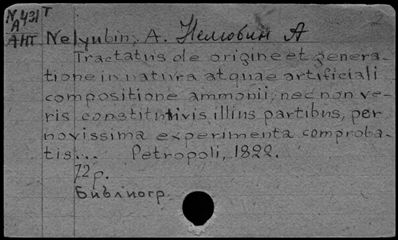 N431T
A
АНТ Nelyubin, A. Нелюбин А
Tractatus de origine et genera-
tione in natura atquae artificiali
compositione ammonii, nec non ve-
ris constitutivis illius partibus, per
novissima experimenta comproba-
tis... Petropoli, 1822.
72 p.
Библиогр.